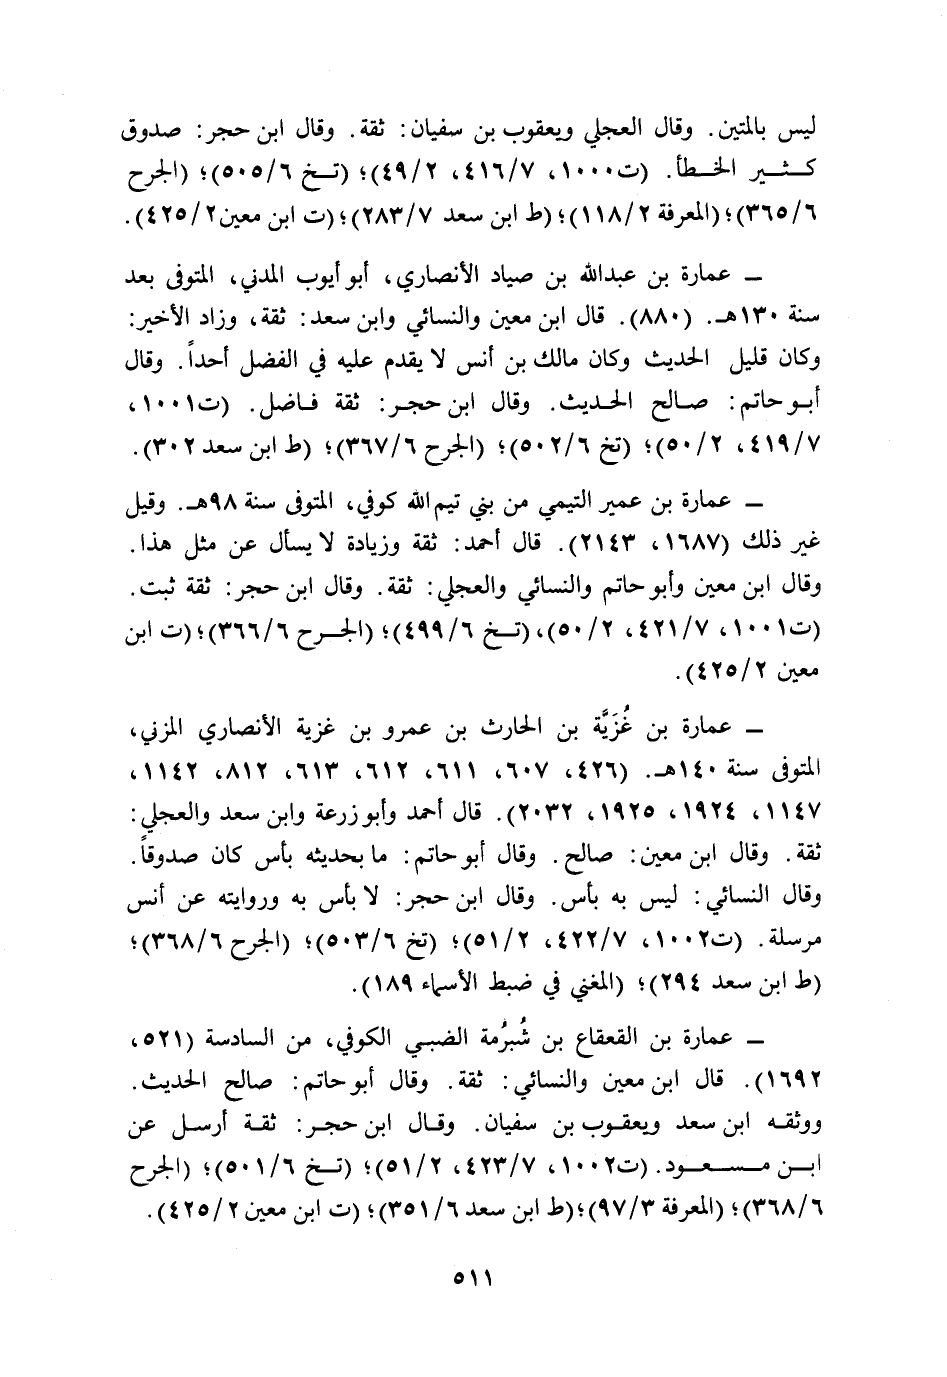 ليس بالمتين. وقال العجلي ويعقوب بن سفيان: ثقة. وقال ابن حجر: صدوق
كثير الخطأ. (ت١٠٠٠، ٤١٦/٧، ٤٩/٢)؛ (تخ ٥٠٥/٦)؛ (الجرح
٣٦٥/٦)؛ (المعرفة ١١٨/٢)؛ (ط ابن سعد ٢٨٣/٧)؛ (ت ابن معين ٤٢٥/٢).
— عمارة بن عبدالله بن صياد الأنصاري، أبو أيوب المدني، المتوفى بعد
سنة ١٣٠هـ. (٨٨٠). قال ابن معين والنسائي وابن سعد: ثقة، وزاد الأخير:
وكان قليل الحديث وكان مالك بن أنس لا يقدم عليه في الفضل أحداً. وقال
أبو حاتم: صالح الحديث. وقال ابن حجر: ثقة فاضل. (ت١٠٠١،
٤١٩/٧، ٥٠/٢)؛ (تخ ٥٠٢/٦)؛ (الجرح ٣٦٧/٦)؛ (ط ابن سعد ٣٠٢).
— عمارة بن عمير التيمي من بني تيم الله كوفي، المتوفى سنة ٩٨هـ. وقيل
غير ذلك (١٦٨٧، ٢١٤٣). قال أحمد: ثقة وزيادة لا يسأل عن مثل هذا.
وقال ابن معين وأبو حاتم والنسائي والعجلي: ثقة. وقال ابن حجر: ثقة ثبت.
(ت١٠٠١، ٤٢١/٧، ٥٠/٢)، (تخ ٤٩٩/٦)؛ (الجرح ٣٦٦/٦)؛ (ت ابن
معين ٤٢٥/٢).
— عمارة بن غُزَيَّة بن الحارث بن عمرو بن غزية الأنصاري المزني،
المتوفى سنة ١٤٠هـ. (٤٢٦، ٦٠٧، ٦١١، ٦١٢، ٦١٣، ٨١٢، ١١٤٢،
١١٤٧، ١٩٢٤، ١٩٢٥، ٢٠٣٢). قال أحمد وأبو زرعة وابن سعد والعجلي:
ثقة. وقال ابن معين: صالح. وقال أبو حاتم: ما بحديثه بأس كان صدوقاً.
وقال النسائي: ليس به بأس. وقال ابن حجر: لا بأس به وروايته عن أنس
مرسلة. (ت١٠٠٢، ٤٢٢/٧، ٥١/٢)؛ (تخ ٥٠٣/٦)؛ (الجرح ٣٦٨/٦)؛
(ط ابن سعد ٢٩٤)؛ (المغني في ضبط الأسماء ١٨٩).
— عمارة بن القعقاع بن شُبرُمة الضبي الكوفي، من السادسة (٥٢١،
١٦٩٢). قال ابن معين والنسائي: ثقة. وقال أبو حاتم: صالح الحديث.
ووثقه ابن سعد ويعقوب بن سفيان. وقال ابن حجر: ثقة أرسل عن
ابن مسعود. (ت١٠٠٢، ٤٢٣/٧، ٥١/٢)؛ (تخ ٥٠١/٦)؛ (الجرح
٣٦٨/٦)؛ (المعرفة ٩٧/٣)؛ (ط ابن سعد ٣٥١/٦)؛ (ت ابن معين ٤٢٥/٢).
٥١١